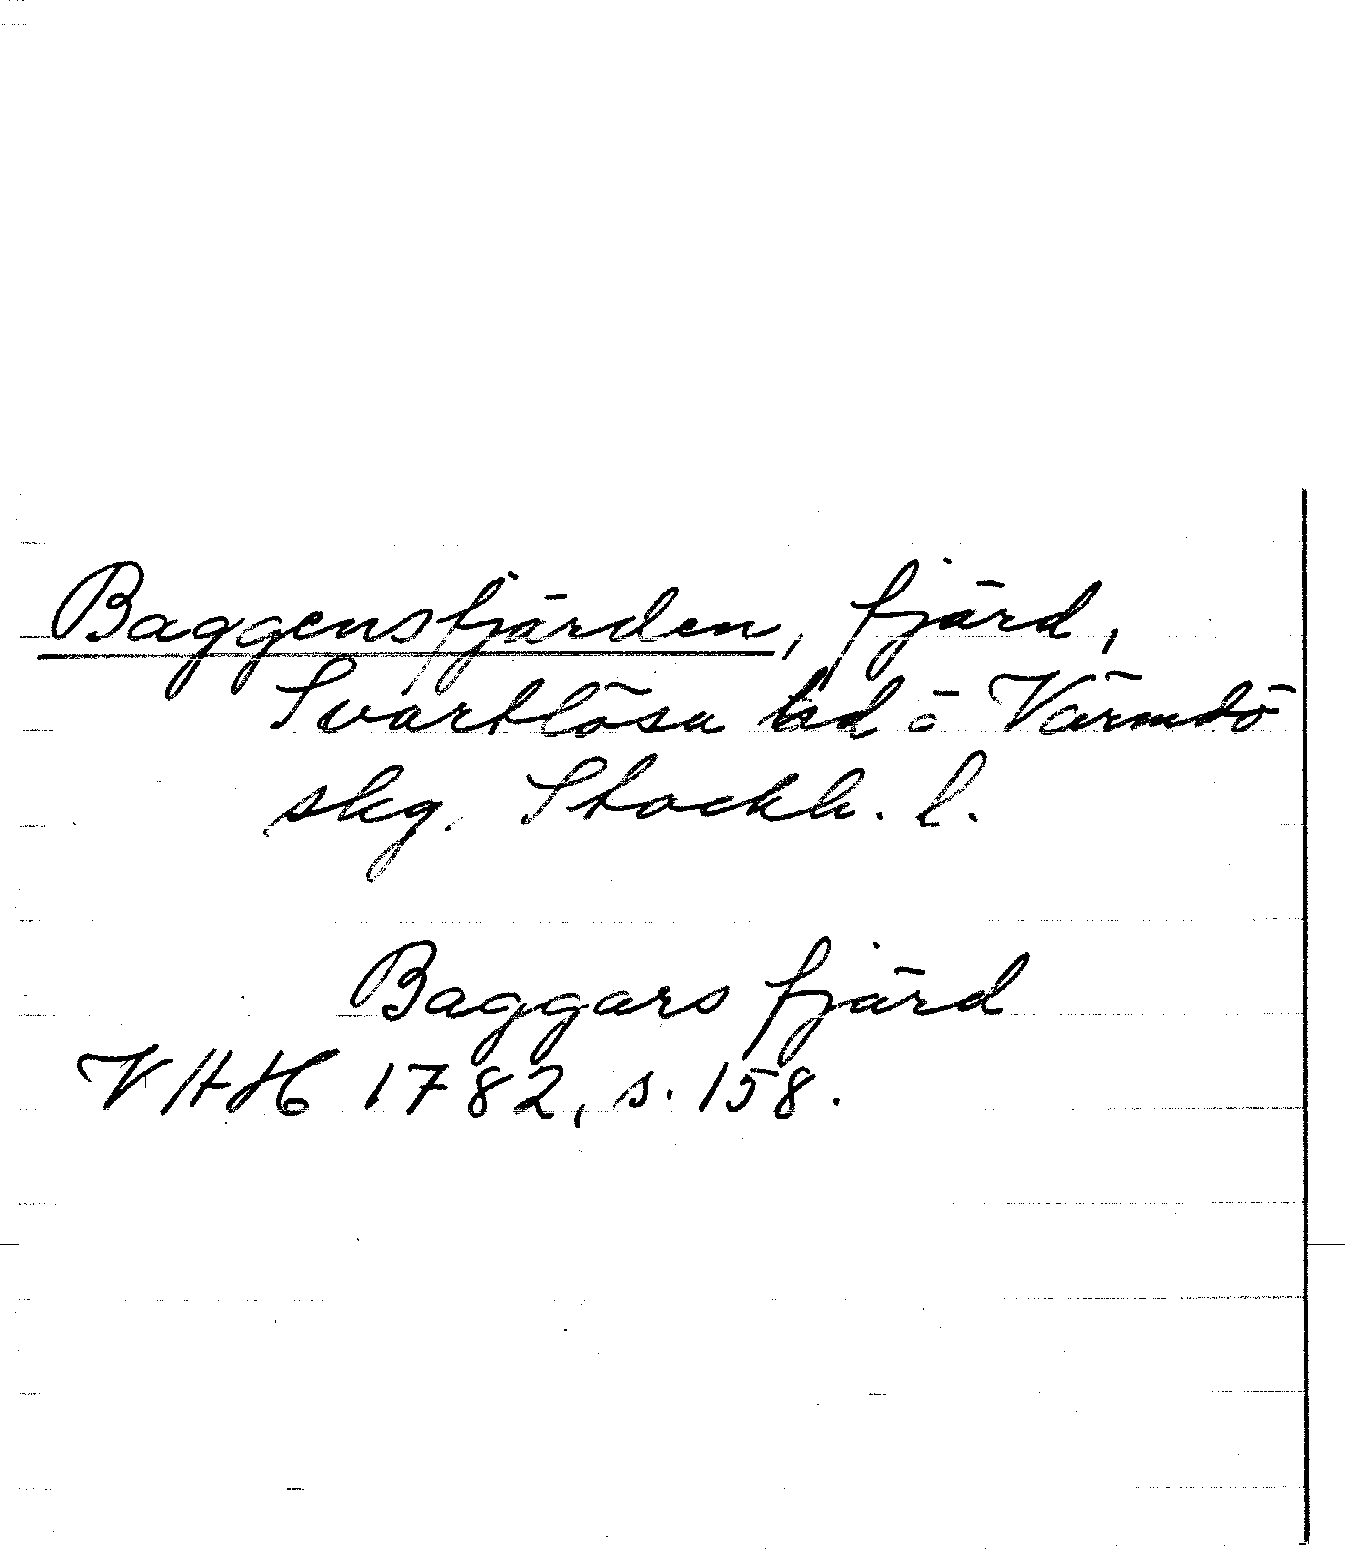 Baggensfjärden, fjärd,
Svartlösa hd o Värmdö
skg. Stockh. l.
Baggars fjärd
VHH 1782, s. 158.